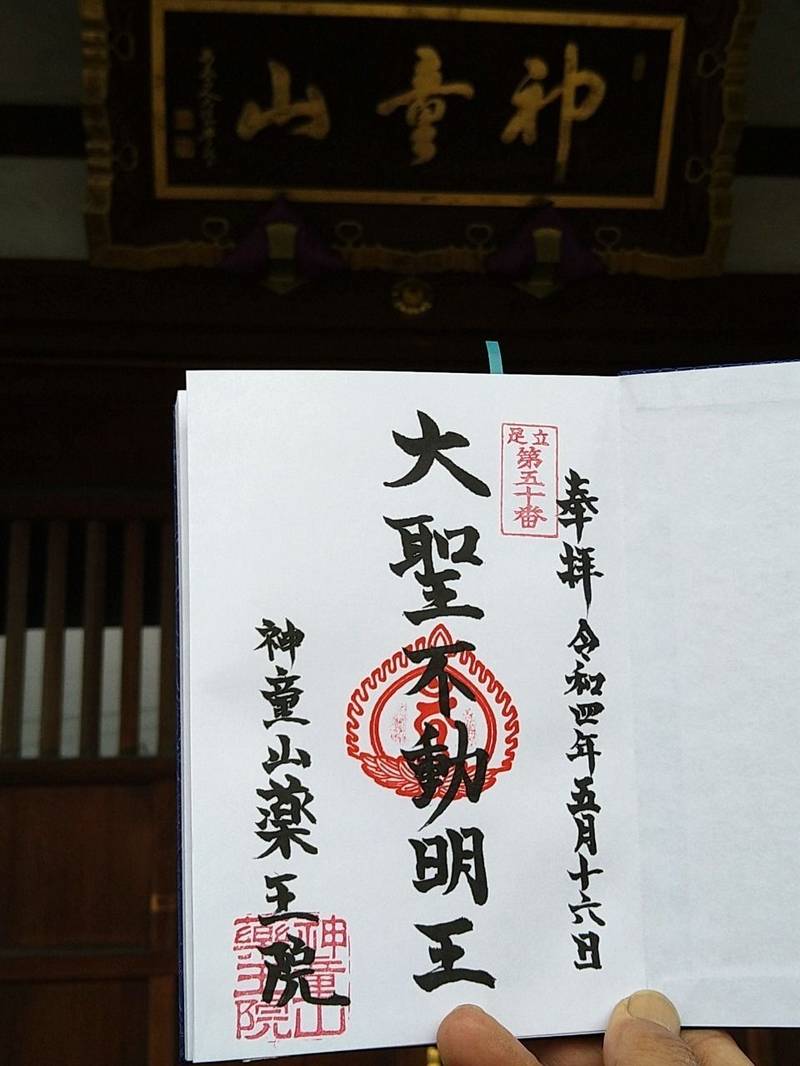 神童山
奉拝 令和四年五月十六日
足立
第五十番
大聖不動明王
神童山薬王院
神童山
薬王院